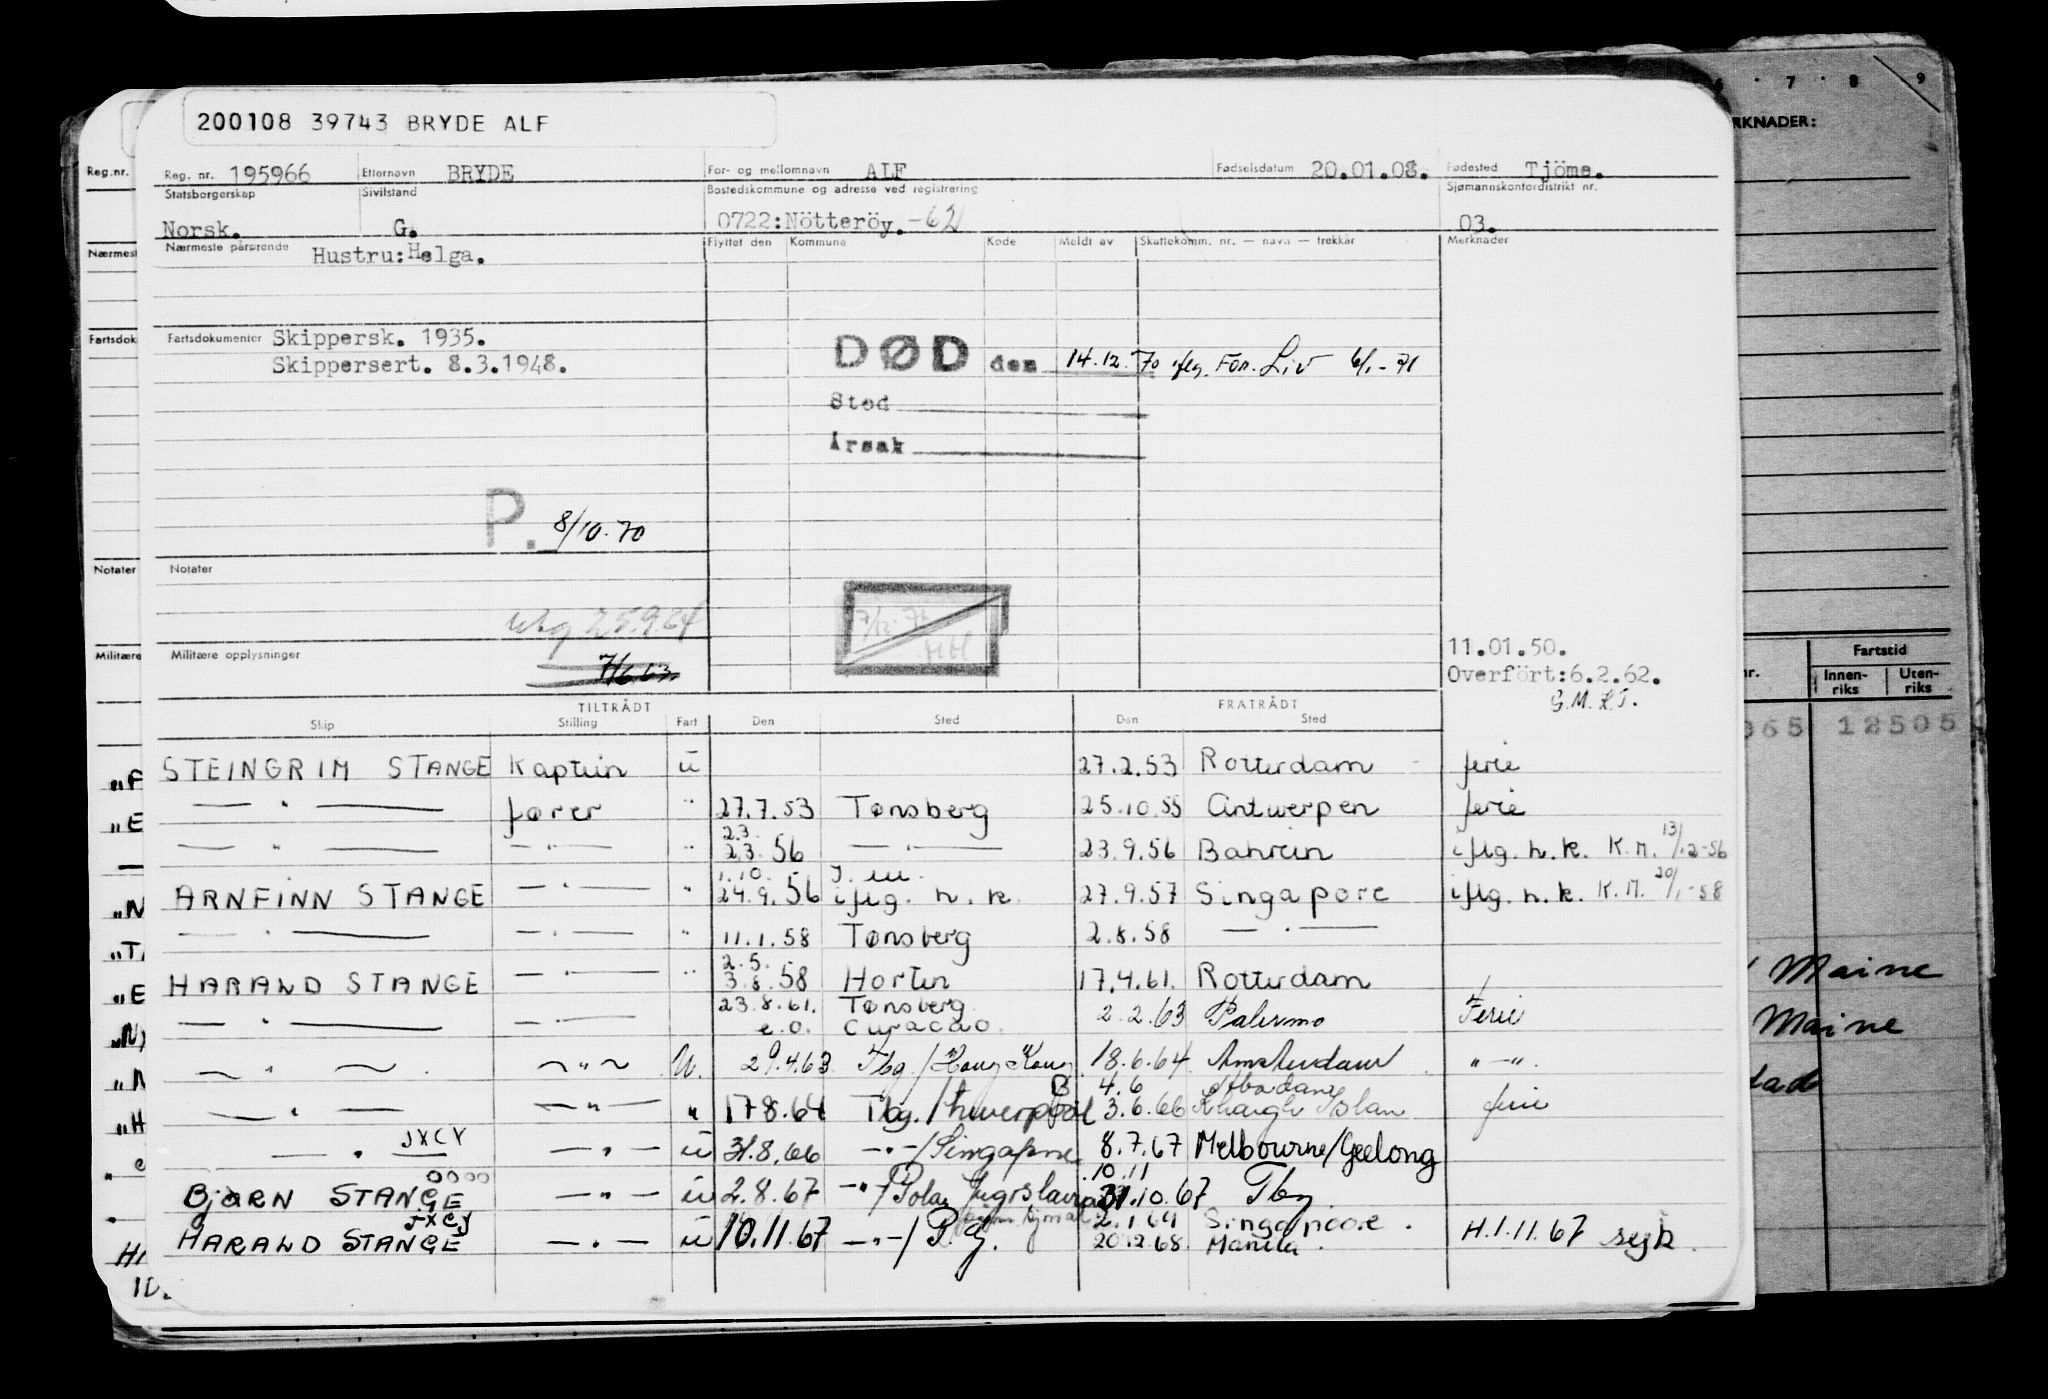 200108 39743 BRYDE ALF
Reg. nr. 195966 Etternavn BRYDE For- og mellomnavn ALF Fødselsdatum 20.01.08. Fødested Tjöme.
Statsborgerskap Sivilstand Bostedskommune og adresse ved registrering Sjømannskontordistrikt nr.
Norsk. G. 0722:Nötteröy. -62 03.
Nærmeste pårørende Hustru:Helga. Flyttet den Kommune Kode Meldt av Skattekomm. nr. — navn — trekkår Merknader
Fartsdokumenter Skippersk. 1935.
Skippersert. 8.3.1948.
DØD den 14.12.70 iflg. For. Liv 6/1-71
Sted
Årsak
P. 8/10-70
Notater
25.9.64
Militære opplysninger 7/6.63
11.01.50.
Overfört:6.2.62.
G.M.
TILTRÅDT FRATRÅDT
Skip Stilling Fart Den Sted Den Sted
STEINGRIM STANGE Kaptein ü 27.2.53 Rotterdam ferie
— " — fører " 27.7.53 Tønsberg 25.10.55 Antwerpen ferie
— " — — " — " 23. 23. 56 — " — 23.9.56 Bahrein iflg. h.k. K.M. 13/12-56
ARNFINN STANGE — " — " 1.10. 24.9.56 iflg. h.k. 27.9.57 Singapore iflg. h.k. K.M. 20/1-58
— " — — " — " 11.1.58 Tønsberg 2.8.58 — " —
HARALD STANGE — " — " 2.5. 3.8.58 Horten 17.4.61. Rotterdam
— " — — " — 23.8.61. Tønsberg 2.2.63 Palermo Ferie
e.o. Curacao.
— " — — " — U. 29.4.63 Tbg/Hong Kong 18.6.64 Amsterdam " — "
— " — — " — " 17.8.64 Tbg./Liverpool 4.6 Abadan
3.6.66 Khargh Islan ferie
— " — JXCY — " — ü 31.8.66 — " —/Singapore 8.7.67 Melbourne/Geelong
BJØRN STANGE OOOO — " — ü 2.8.67 — " —/Pola Jugoslavia 10.11 31.10.67 Tbg
HARALD STANGE JXCY — " — ü 10.11.67 — " —/P.G. 2.1.69 Singapore.
20.12.68. Manila. H.1.11.67 sejk
Reg.nr.
Nærmest
Fartsdok
Notater
Militære
6 7 8 9
RKNADER:
Fartstid
nr. Innen-riks Uten-riks
065 12505
Maine
Maine